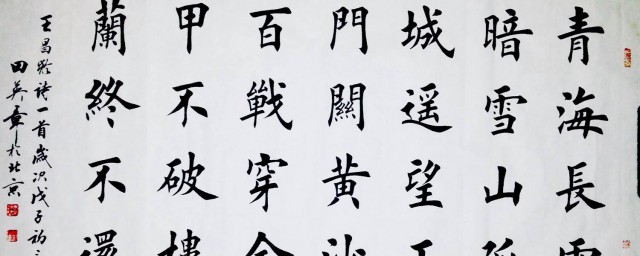 青海長雲
暗雪山孤
城遥望
門關黄沙
百戰穿金
甲不破樓
蘭終不還
王昌齡詩一首歲次戊子初
田英章於北京